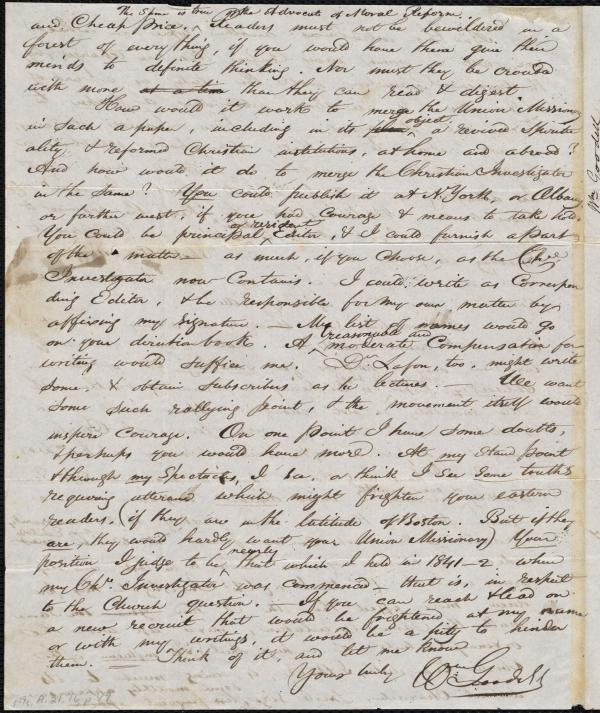 The same is true of the Advocate of Moral Reform.
and Cheap price. Readers must not be bewildered in a
forest of everything, if you would have them give their
minds to definite thinking. Nor must they be crowded
with more at a time than they can read & digest.
How would it work to merge the Union Missionary
in such a paper, including in its object, a revived Spiritu
ality, & reformed Christian institutions, at home and abroad?
And how would it do to merge the Christian Investigator
in the same? You could publish it at N York, or Albany
or farther west, if you had Courage & means to take hold.
You could be principal or resident Editor, & I could furnish a part
of the matter — as much, if you choose, as the Chn
Investigator now Contains. I could write as Correspon
ding Editor, & be responsible for my own matter by
affixing my signature. — My list of names would go
on your direction book. A reasonable and moderate Compensation for
writing would suffice me. Dr. Lafon, too, might write
some & obtain subscribers as he lectures. — We want
some such rallying point, & the movement itself would
inspire courage. On one point I have some doubts,
& perhaps you would have more. At my stand point
& through my spectacles, I see, or think I see some truths
requiring utterance which might frighten your eastern
readers, (if they are in the latitude of Boston. But if they
are, they would hardly want your Union Missionary) Your
position I judge to be, nearly that which I held in 1841-2 when
my Chn. Investigator was commenced — that is, in respect
to the Church question. — If you can reach & lead on
a new recruit that would be frightened at my name
or with my writings, it would be a pity to hinder
them. — Think of it, and let me know
Yours truly Wm. Goodell
Wm Goodell